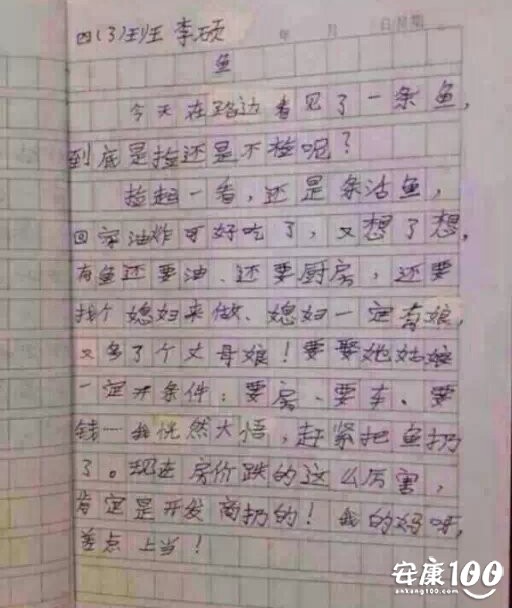 四(3)班 李硕
年 月 日星期
鱼
今天在路边看见了一条鱼,
到底是捡还是不捡呢?
捡起一看,还是条活鱼,
回家油炸可好吃了,又想了想,
有鱼还要油、还要厨房,还要
找个媳妇来做、媳妇一定有娘,
又多了个丈母娘!要娶她姑娘
一定开条件:要房、要车、要
钱……我恍然大悟,赶紧把鱼扔
了。现在房价跌的这么厉害,
肯定是开发商扔的!我的妈呀,
差点上当!
安康100
ankang100.com